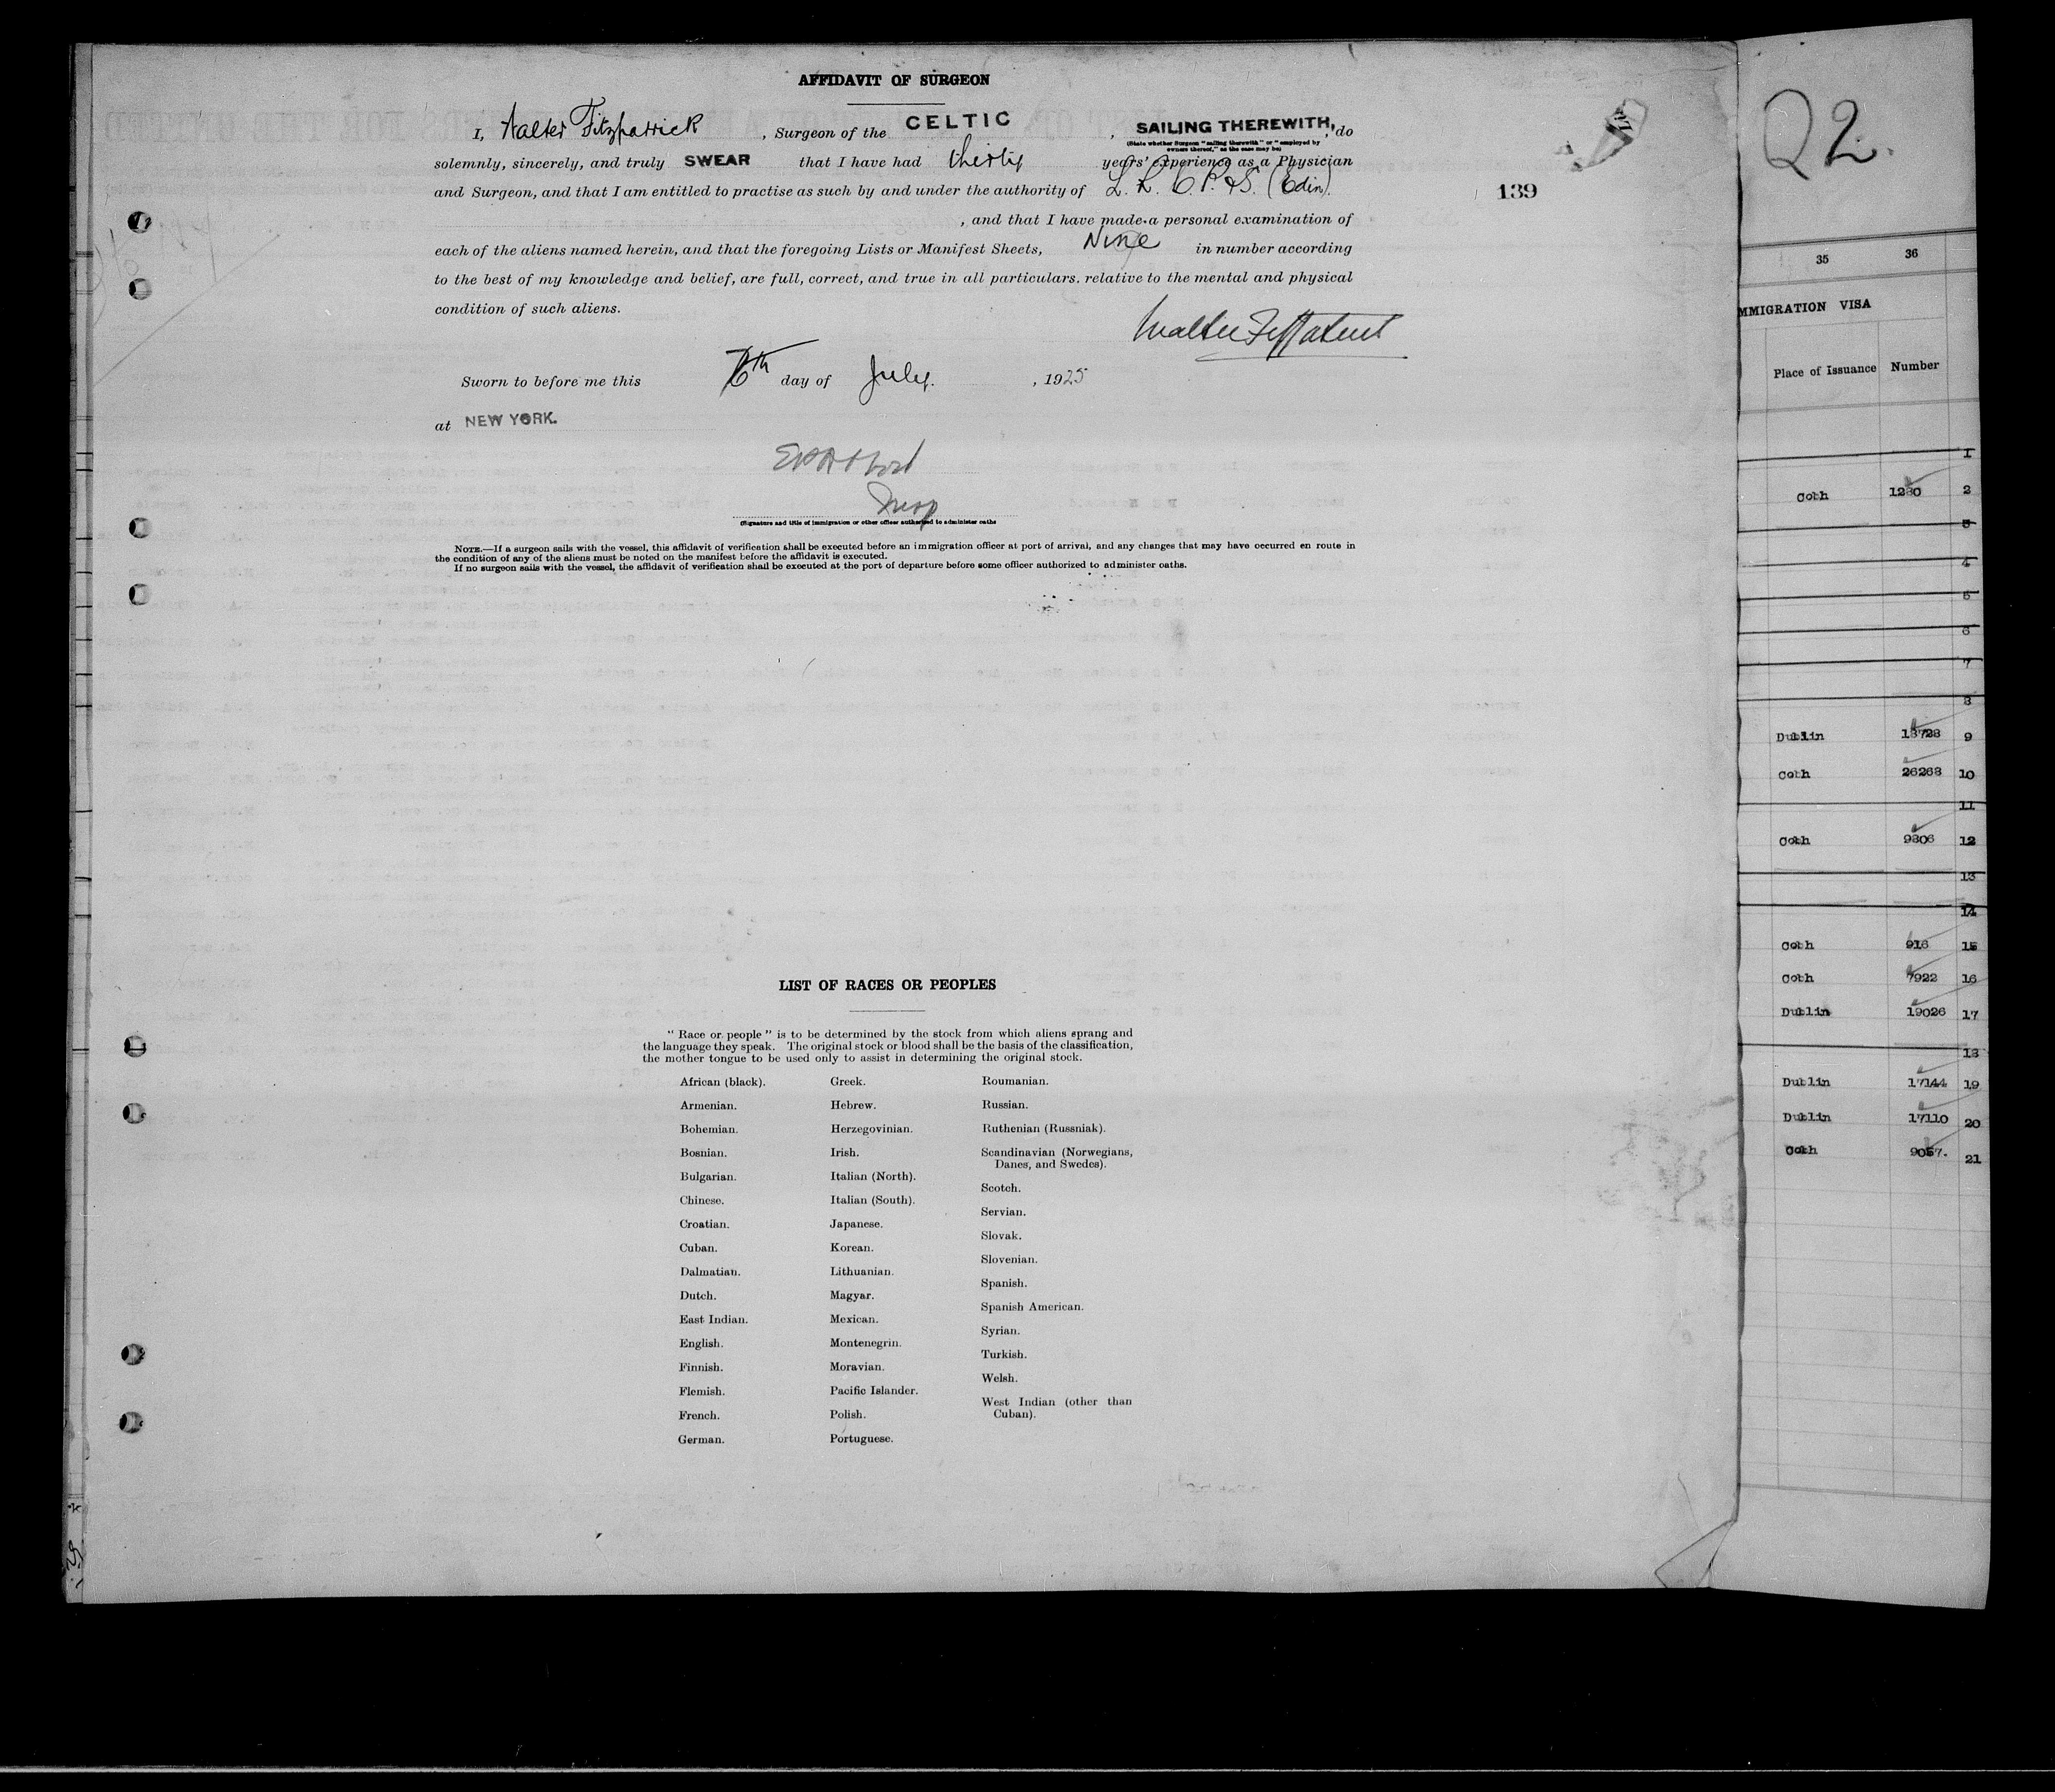 AFFIDAVIT OF SURGEON
I, Walter Fitzpatrick, Surgeon of the CELTIC, SAILING THEREWITH, do
(State whether Surgeon "sailing therewith" or "employed by
owners thereof," as the case may be)
solemnly, sincerely, and truly SWEAR that I have had thirty years' experience as a Physician
and Surgeon, and that I am entitled to practise as such by and under the authority of L. R. C. P. & S. (Edin).
, and that I have made a personal examination of
each of the aliens named herein, and that the foregoing Lists or Manifest Sheets, Nine in number according
to the best of my knowledge and belief, are full, correct, and true in all particulars, relative to the mental and physical
condition of such aliens.
Walter Fitzpatrick
Sworn to before me this 6th day of July, 1925
at NEW YORK.
Insp
(Signature and title of immigration or other officer authorized to administer oaths
NOTE.—If a surgeon sails with the vessel, this affidavit of verification shall be executed before an immigration officer at port of arrival, and any changes that may have occurred en route in
the condition of any of the aliens must be noted on the manifest before the affidavit is executed.
If no surgeon sails with the vessel, the affidavit of verification shall be executed at the port of departure before some officer authorized to administer oaths.
139
LIST OF RACES OR PEOPLES
"Race or people" is to be determined by the stock from which aliens sprang and
the language they speak. The original stock or blood shall be the basis of the classification,
the mother tongue to be used only to assist in determining the original stock.
African (black).
Armenian.
Bohemian.
Bosnian.
Bulgarian.
Chinese.
Croatian.
Cuban.
Dalmatian.
Dutch.
East Indian.
English.
Finnish.
Flemish.
French.
German.
Greek.
Hebrew.
Herzegovinian.
Irish.
Italian (North).
Italian (South).
Japanese.
Korean.
Lithuanian.
Magyar.
Mexican.
Montenegrin.
Moravian.
Pacific Islander.
Polish.
Portuguese.
Roumanian.
Russian.
Ruthenian (Russniak).
Scandinavian (Norwegians,
Danes, and Swedes).
Scotch.
Servian.
Slovak.
Slovenian.
Spanish.
Spanish American.
Syrian.
Turkish.
Welsh.
West Indian (other than
Cuban).
22.
35 36
MMIGRATION VISA
Place of Issuance Number
1
Cobh 1280 2
3
4
5
6
7
8
Dublin 18728 9
Cobh 26268 10
11
Cobh 9806 12
13
14
Cobh 916 15
Cobh 7922 16
Dublin 19026 17
18
Dublin 17144 19
Dublin 17110 20
Cobh 9057. 21